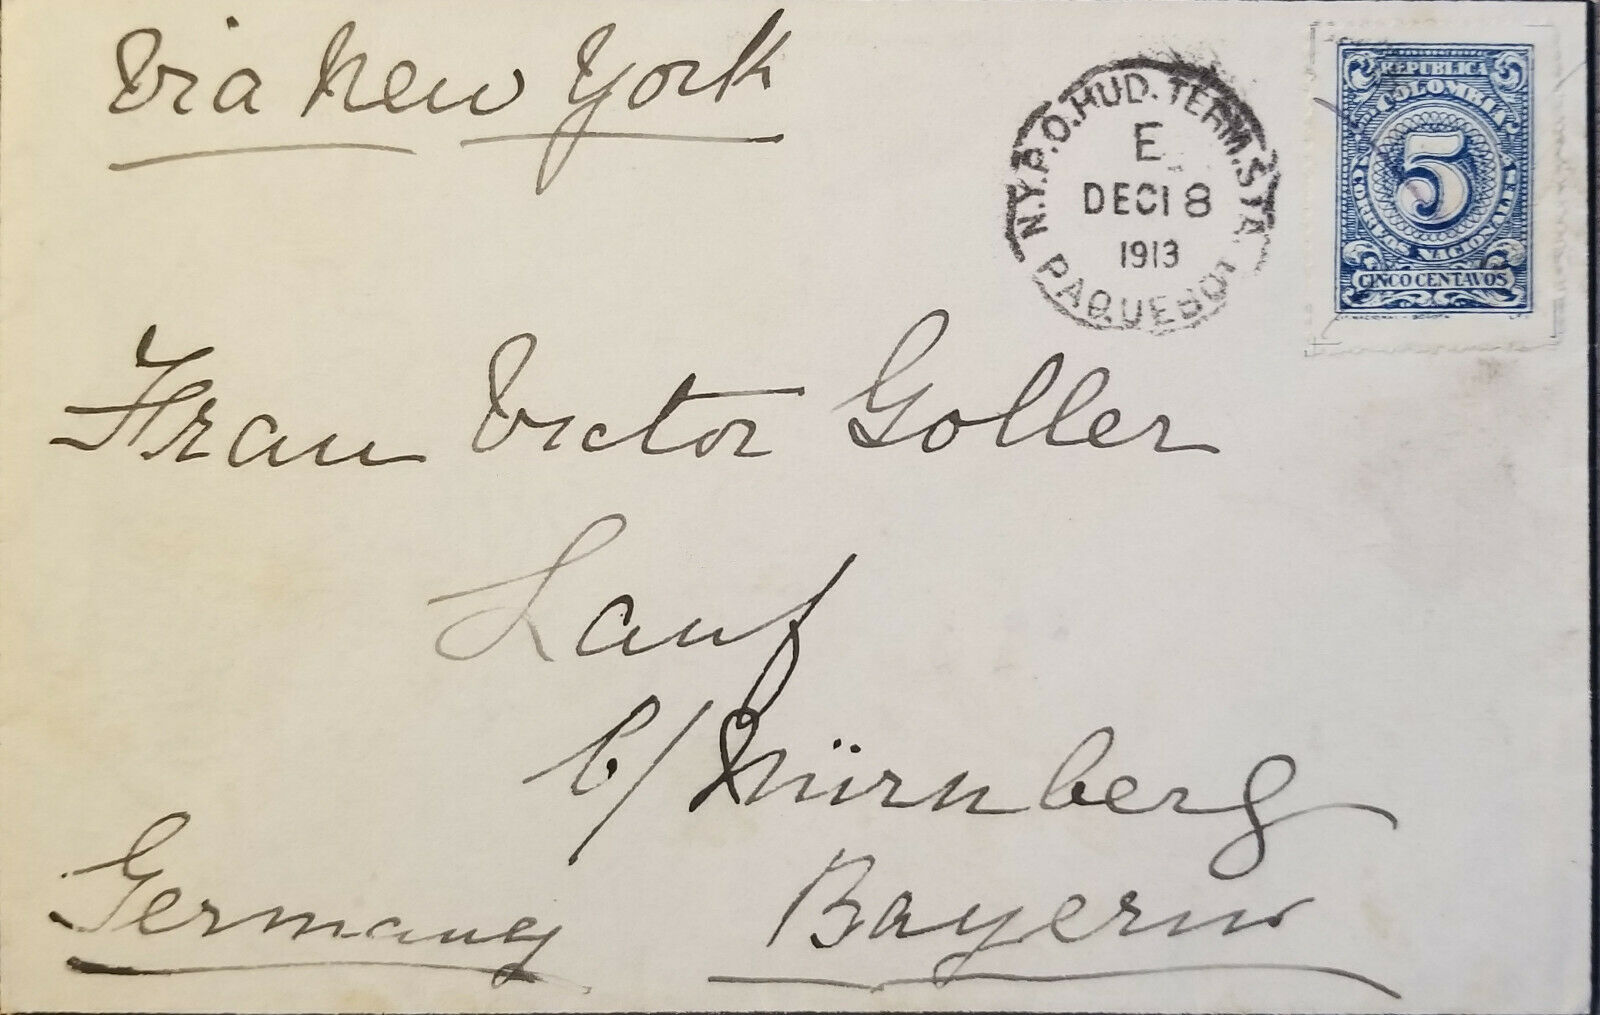 Via New York
N.Y.P.O. HUD. TERM. STA.
E
DEC 18
1913
PAQUEBOT
REPUBLICA
COLOMBIA
5
CORREOS NACIONALES
CINCO CENTAVOS
Frau Victor Goller
Lauf
b/ Nürnberg
Germany Bayern